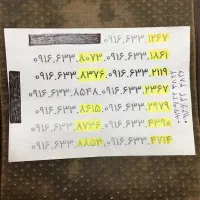 ۰۹۱۶.۶۳۳.۱۲۶۷
۰۹۱۶.۶۳۳.۸۰۷۳ ۰۹۱۶.۶۳۳.۱۸۶۱
۰۹۱۶.۶۳۳.۸۳۷۶ ۰۹۱۶.۶۳۳.۲۱۱۹
۰۹۱۶.۶۳۳.۸۵۴۸ ۰۹۱۶.۶۳۳.۲۳۶۷
۰۹۱۶.۶۳۳.۸۶۱۵ ۰۹۱۶.۶۳۳.۲۹۷۹
۰۹۱۶.۶۳۳.۸۷۳۶ ۰۹۱۶.۶۳۳.۴۳۹۰
۰۹۱۶.۶۳۳.۸۸۵۳ ۰۹۱۶.۶۳۳.۴۷۱۴